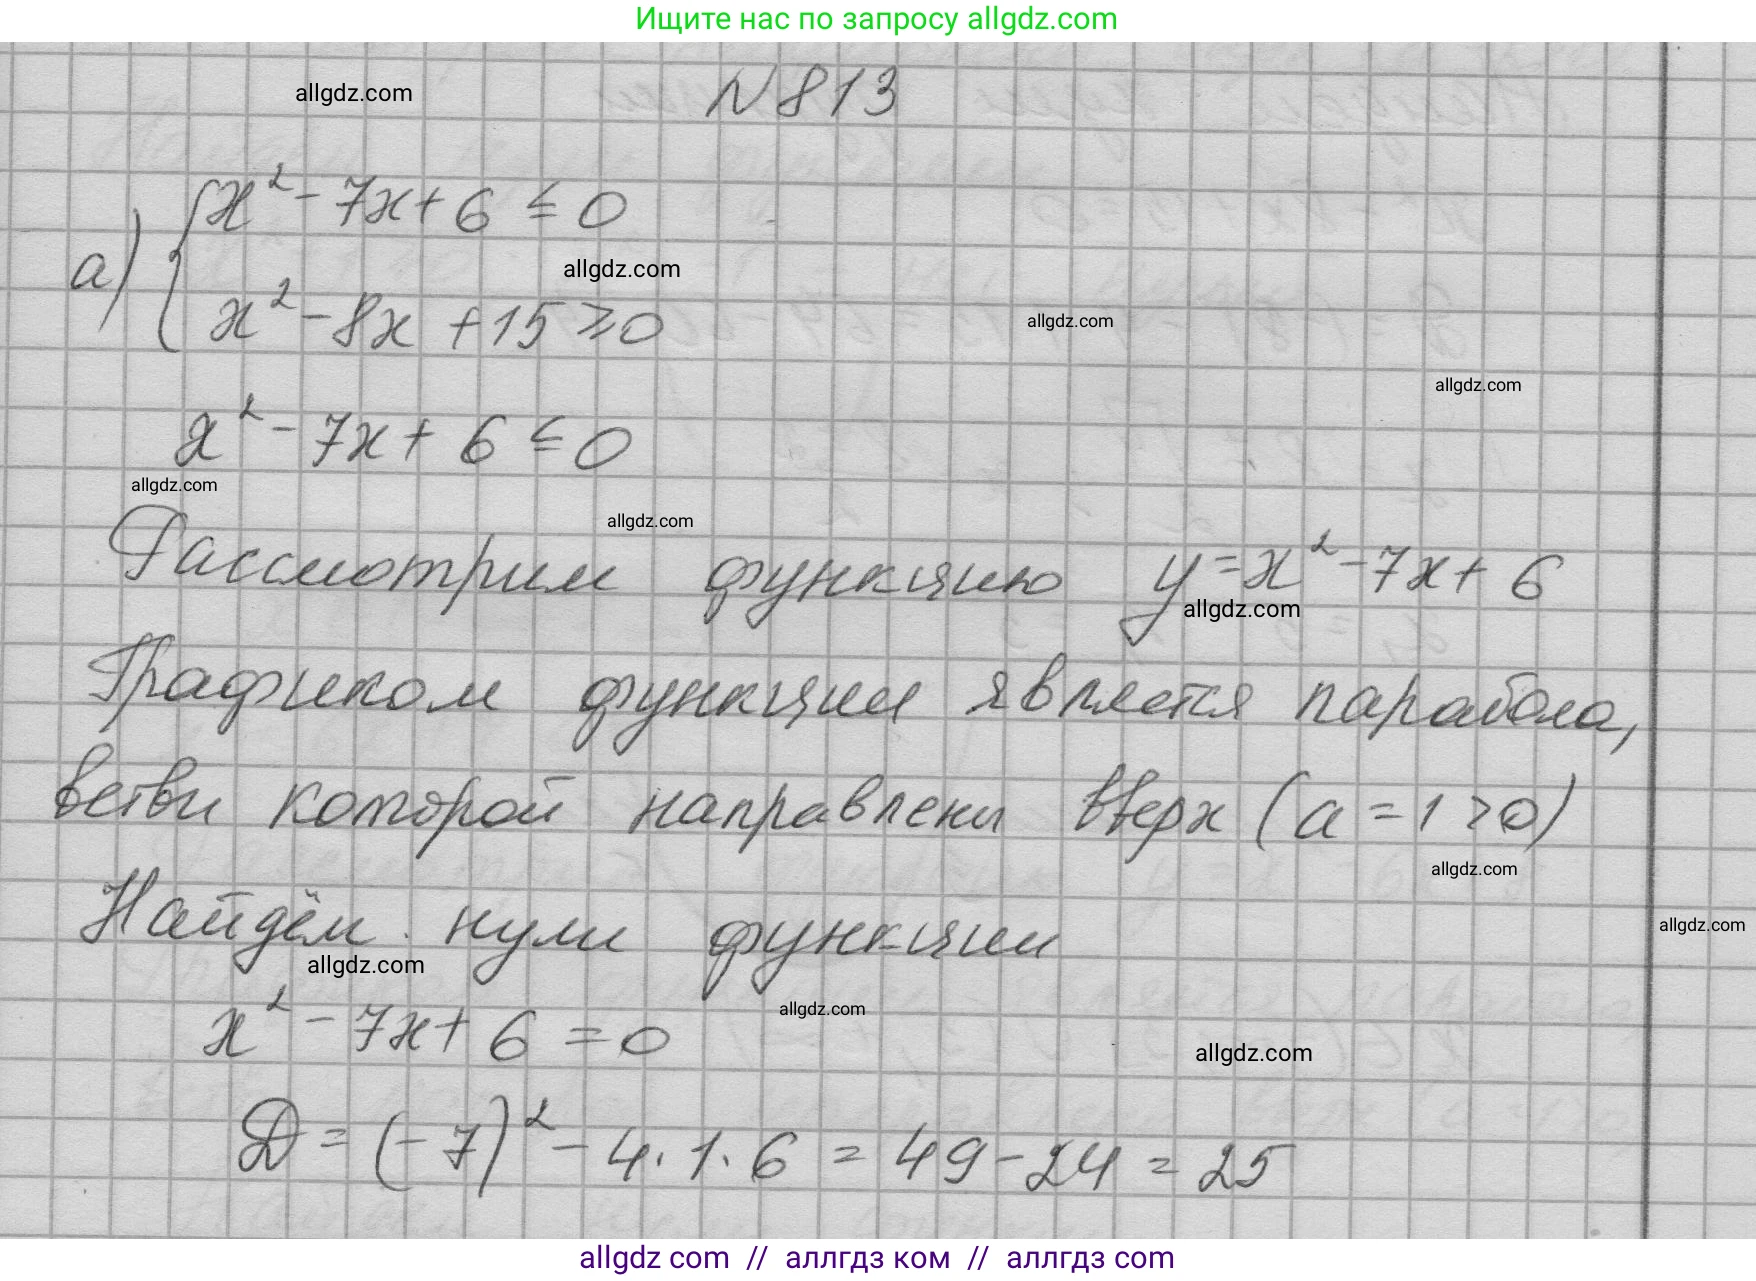 Ищите нас по запросу allgdz.com
allgdz.com
N 813
а) { x² - 7x + 6 ≤ 0
allgdz.com
x² - 8x + 15 ≥ 0
allgdz.com
allgdz.com
x² - 7x + 6 ≤ 0
allgdz.com
allgdz.com
Рассмотрим функцию y = x² - 7x + 6
allgdz.com
Графиком функции является парабола,
ветви которой направлены вверх (a = 1 > 0)
allgdz.com
Найдём нули функции
allgdz.com
allgdz.com
x² - 7x + 6 = 0
allgdz.com
allgdz.com
D = (-7)² - 4 · 1 · 6 = 49 - 24 = 25
allgdz com // аллгдз ком // аллгдз com